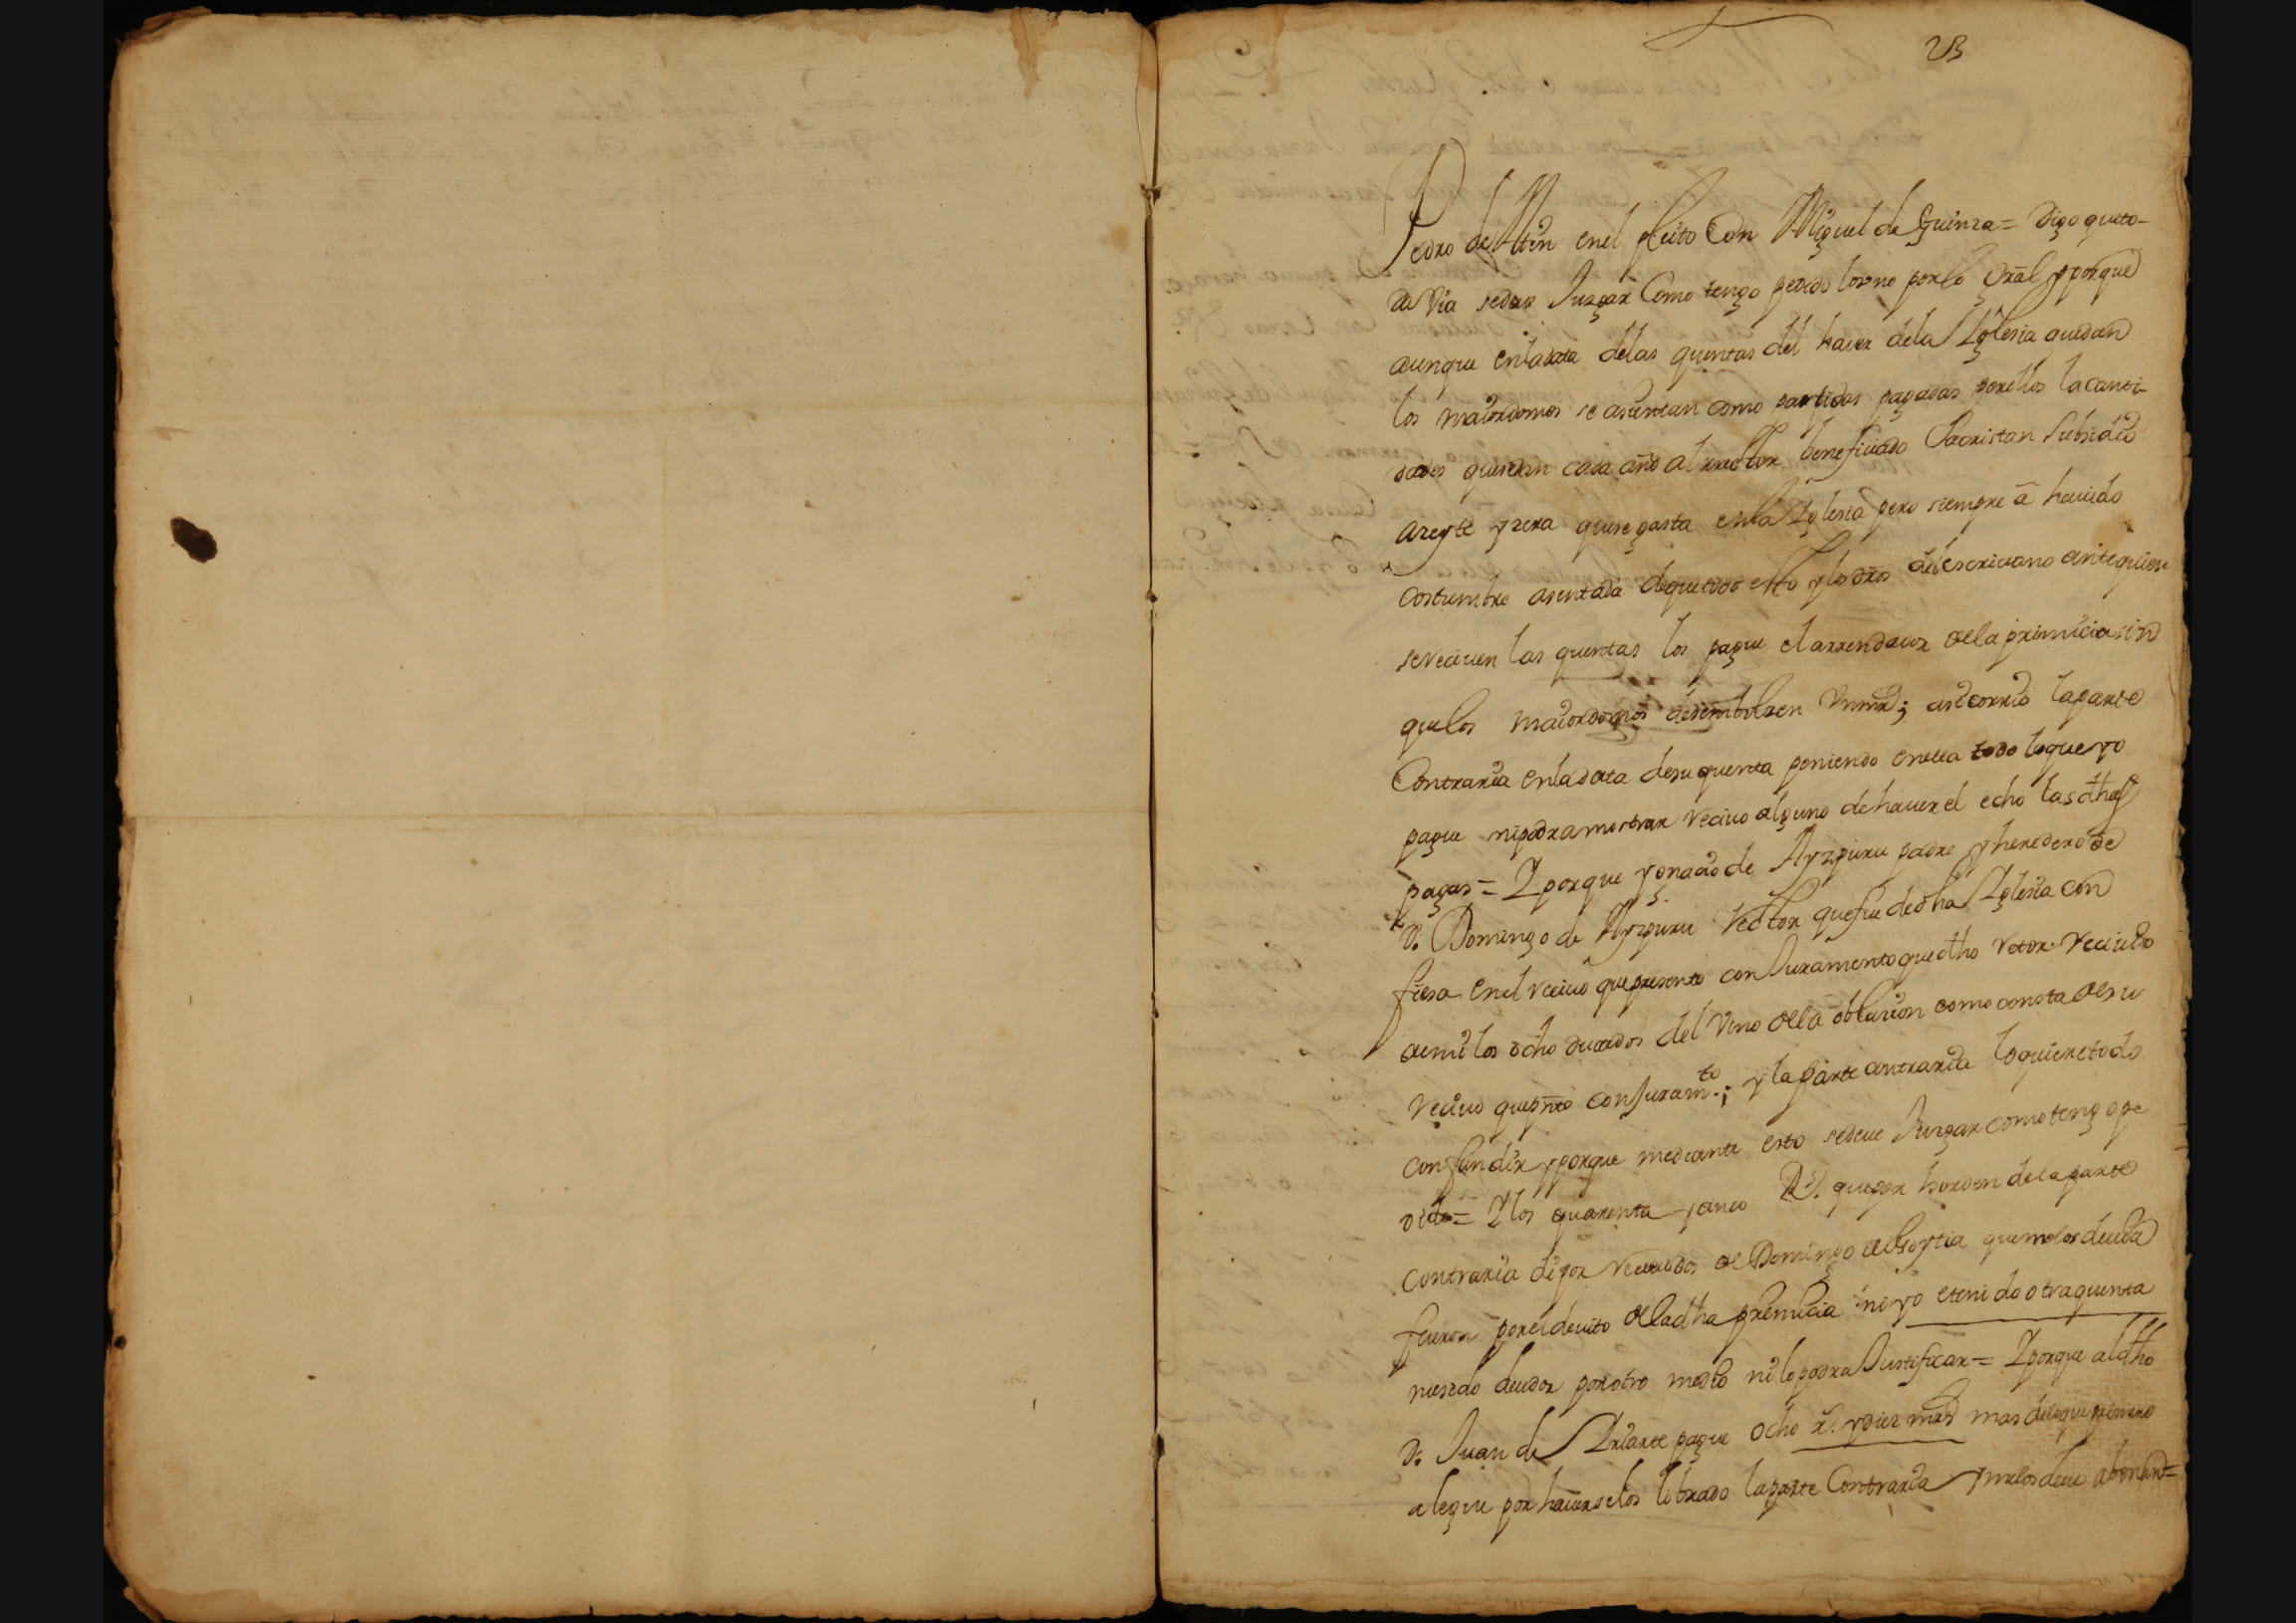 23
Pedro de Altun en el pleito Con Miguel de Guinza = Digo que to-
da Via se deve Jusgar Como tengo pedido lo uno por lo gral y porque
aunque en la data de las quentas del haver de la Iglesia que dan
los maiordomos se asientan como partidas pagadas por ellos la canti-
dades que se dan cada año al rrector beneficiado Sacristan Subsidio
azeyte y zera que se gasta en la Iglesia pero siempre ā havido
costumbre asentada de que todo esto y los dros del escrivano ante quien
se reciven las quentas los pague el arrendador de la primicia sin
que los maiordomos desembolzen Vn mrd; asi corrio la parte
Contraria en la data de su quenta poniendo en ella todo lo que yo
pague ni podra mostrar recivo alguno de haver el echo las dhas
pagas = Y porque Ygnacio de Ayzpuru padre y heredero de
Dn Domingo de Ayzpuru Rector que fue de dha Iglesia con
fiesa en el recivo que presento con Juramento que dho retor recivio
de mi los ocho ducados del Vino de la oblacion como consta de su
recivo que pnto con Juramto; y la parte contraria lo quiere todo
confundir y porque mediante esto se deve Jusgar como tengo pe
dido = Y los quarenta y cinco Rs. que por horden de la parte
contraria di por recividos de Domingo de Goytia que me los devia
fueron por el devito de la dha premicia ni yo e tenido otra quenta
ni e sido deudor por otro medio ni lo podra Justificar = Y porque al dho
Dn Juan de Yriarte pague ocho rs. y diez mrs mas de lo que primero
alegue por haverselos librado la parte Contraria y me los deve abonar =